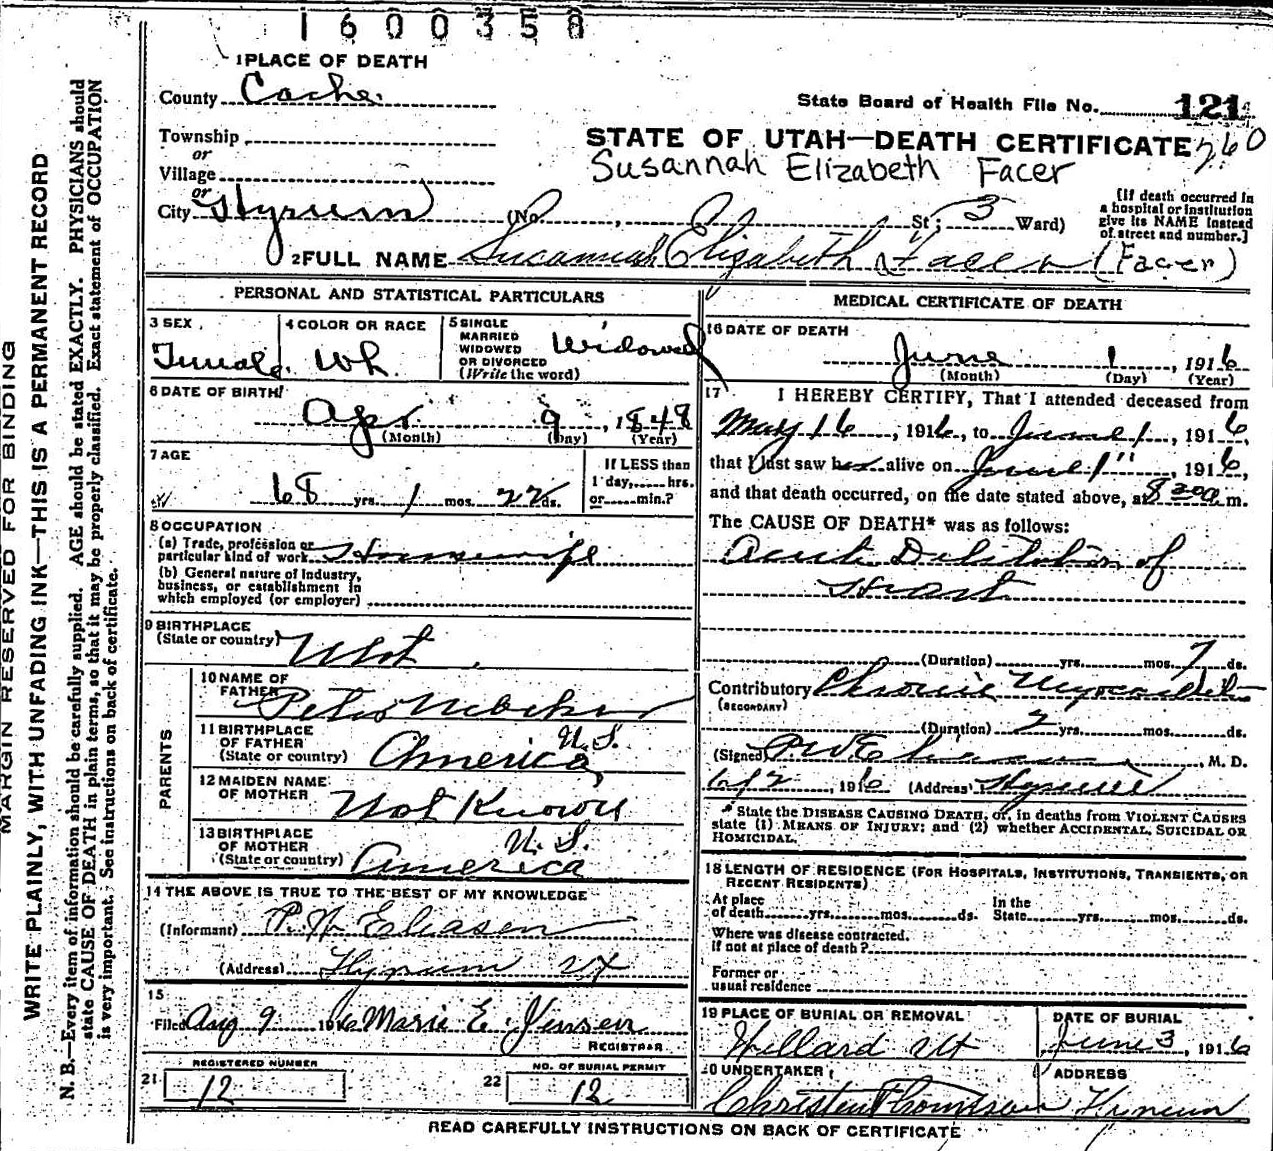 1600358
1 PLACE OF DEATH
County Cache
State Board of Health File No. 121
Township
or
Village
or
City Hyrum (No. , St; 3 Ward)
STATE OF UTAH—DEATH CERTIFICATE 260
Susannah Elizabeth Facer
[If death occurred in
a hospital or institution
give its NAME instead
of street and number.]
2 FULL NAME Susannah Elizabeth Facer (Facer)
PERSONAL AND STATISTICAL PARTICULARS
3 SEX Female
4 COLOR OR RACE Wh.
5 SINGLE
MARRIED
WIDOWED
OR DIVORCED
(Write the word) Widowed
6 DATE OF BIRTH
Apr. 9, 1848
(Month) (Day) (Year)
7 AGE
68 yrs. 1 mos. 22 ds.
If LESS than
1 day,......hrs.
or......min.?
8 OCCUPATION
(a) Trade, profession or
particular kind of work Housewife
(b) General nature of Industry,
business, or establishment in
which employed (or employer)
9 BIRTHPLACE
(State or country)
PARENTS
10 NAME OF
FATHER Peter
11 BIRTHPLACE
OF FATHER
(State or country) America U.S.
12 MAIDEN NAME
OF MOTHER Not Known
13 BIRTHPLACE
OF MOTHER
(State or country) America U.S.
14 THE ABOVE IS TRUE TO THE BEST OF MY KNOWLEDGE
(Informant) P. N. Eliasen
(Address) Hyrum Ut
15
Filed Aug 9 1916 Marie E. Jensen
REGISTRAR
REGISTERED NUMBER
21 12
NO. OF BURIAL PERMIT
22 12
MEDICAL CERTIFICATE OF DEATH
16 DATE OF DEATH
June 1, 1916
(Month) (Day) (Year)
17 I HEREBY CERTIFY, That I attended deceased from
May 16, 1916, to June 1, 1916,
that I last saw her alive on June 1", 1916,
and that death occurred, on the date stated above, at 8 30a m.
The CAUSE OF DEATH* was as follows:
Acute Dilitation of
Heart
(Duration) yrs. mos. 7 ds.
Contributory Chronic Myocarditis
(SECONDARY)
(Duration) 2 yrs. mos. ds.
(Signed) , M. D.
1916 (Address) Hyrum
* State the DISEASE CAUSING DEATH, or, in deaths from VIOLENT CAUSES
state (1) MEANS OF INJURY; and (2) whether ACCIDENTAL, SUICIDAL OR
HOMICIDAL.
18 LENGTH OF RESIDENCE (FOR HOSPITALS, INSTITUTIONS, TRANSIENTS, OR
RECENT RESIDENTS)
At place
of death......yrs......mos......ds.
In the
State......yrs......mos......ds.
Where was disease contracted,
if not at place of death?
Former or
usual residence
19 PLACE OF BURIAL OR REMOVAL
Willard Ut
DATE OF BURIAL
June 3, 1916
20 UNDERTAKER
Christen Thomsen
ADDRESS
Hyrum
READ CAREFULLY INSTRUCTIONS ON BACK OF CERTIFICATE
MARGIN RESERVED FOR BINDING
WRITE PLAINLY, WITH UNFADING INK—THIS IS A PERMANENT RECORD
N. B.—Every item of information should be carefully supplied. AGE should be stated EXACTLY. PHYSICIANS should
state CAUSE OF DEATH in plain terms, so that it may be properly classified. Exact statement of OCCUPATION
is very important. See instructions on back of certificate.